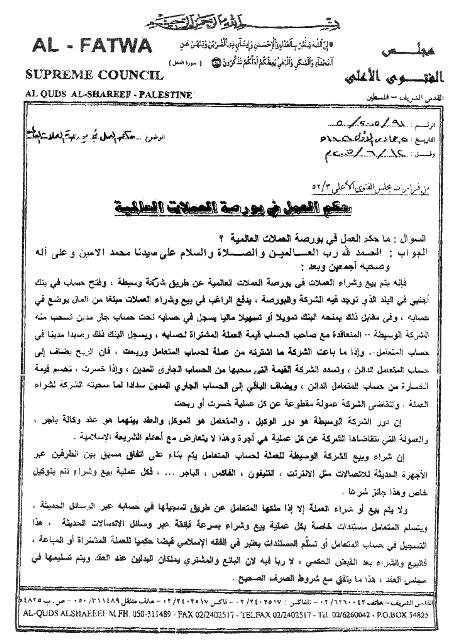 بسم الله الرحمن الرحيم
AL - FATWA
SUPREME COUNCIL
AL QUDS AL-SHAREEF - PALESTINE
﴿إن الله يأمر بالعدل والإحسان وإيتاء ذي القربى وينهى عن
الفحشاء والمنكر والبغي يعظكم لعلكم تذكرون﴾
مجلس
الفتوى الأعلى
القدس الشريف - فلسطين
الرقم :
التاريخ :
الموضوع :
من قرارات مجلس الفتوى الأعلى ٥٢/٣
حكم العمل في بورصة العملات العالمية
السؤال : ما حكم العمل في بورصة العملات العالمية ؟
الجواب : الحمد لله رب العالمين والصلاة والسلام على سيدنا محمد الامين وعلى آله
وصحبه أجمعين وبعد :
فإنه يتم بيع وشراء العملات في بورصة العملات العالمية عن طريق شركة وسيطة ، وفتح حساب في بنك
أجنبي في البلد الذي توجد فيه الشركة والبورصة ، يدفع الراغب في بيع وشراء العملات مبلغا من المال يوضع في
حسابه ، وفي مقابل ذلك يمنحه البنك تمويلا أو تسهيلا ماليا يسجل في حسابه تحت حساب جار مدين تسحب منه
الشركة الوسيطة – المتعاقدة مع صاحب الحساب قيمة العملة المشتراة لحسابه ، ويسجل البنك ذلك رصيدا مدينا في
حساب المتعامل.. وإذا ما باعت الشركة ما اشترته من عملة لحساب المتعامل وربحت ، فان الربح يضاف إلى
حساب المتعامل الدائن ، وتسدد الشركة القيمة التي سحبتها من الحساب الجاري المدين ، وإذا خسرت ، تخصم قيمة
الخسارة من حساب المتعامل الدائن ، ويضاف الباقي إلى الحساب الجاري المدين سدادا لما سحبته الشركة لشراء
العملة . وتتقاضى الشركة عمولة مقطوعة عن كل عملية خسرت أو ربحت
إن دور الشركة الوسيطة هو دور الوكيل ، والمتعامل هو الموكل والعقد بينهما هو عقد وكالة بأجر ،
والعمولة التي تتقاضاها الشركة عن كل عملية هي أجرة وهذا لا يتعارض مع أحكام الشريعة الإسلامية .
إن شراء وبيع الشركة الوسيطة للعملة لحساب المتعامل يتم بناء على اتفاق مسبق بين الطرفين عبر
الأجهزة الحديثة للاتصالات مثل الانترنت ، التليفون ، الفاكس ، الباجر ... ، فكل عملية بيع وشراء تتم بتوكيل
خاص وهذا جائز شرعا .
ولا يتم بيع أو شراء العملة إلا إذا ملكها المتعامل عن طريق تسجيلها في حسابه عبر الوسائل الحديثة ،
ويتسلم المتعامل مستندات خاصة بكل عملية بيع وشراء بسرعة فائقة عبر وسائل الاتصالات الحديثة ، هذا
التسجيل في حساب المتعامل أو تسلم المستندات يعتبر في الفقه الإسلامي قبضا حكميا للعملة المشتراة أو المباعة ،
فالبيع والشراء بعد القبض الحكمي ، لا ربا فيه لان البائع والمشتري يملكان البدلين عند العقد ويتم تسليمها في
مجلس العقد ، هذا ما يتفق مع شروط الصرف الصحيح .
القدس الشريف – هاتف ٠٢/٦٢٦٠٠٤٢ – تلفاكس ٠٢/٢٤٠٢٥١٧ – فاكس ٠٢/٢٤٠٢٥١٧ – هاتف متنقل ٠٥٠/٣١١٤٨٩ – ص . ب ٥٤٨٢٥
AL-QUDS ALSHAREEF M.FH. 050-311489 - FAX 02/2402517 - TELFAX 02/2402517 - TEL 02/6260042 - P.O.BOX 54825